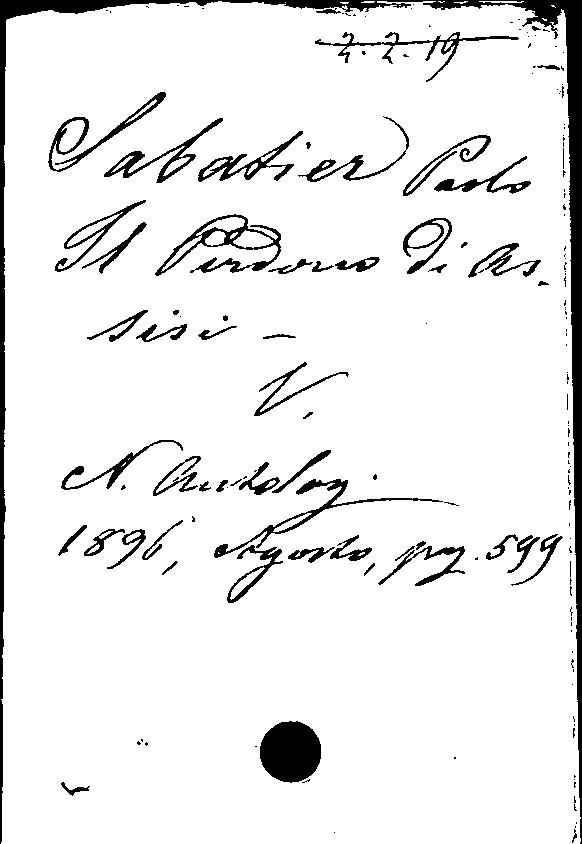 2.2.19
Sabatier Paolo
Il Perdono di As-
sisi –
V.
N. Antolog.
1896, Agosto, pag. 599